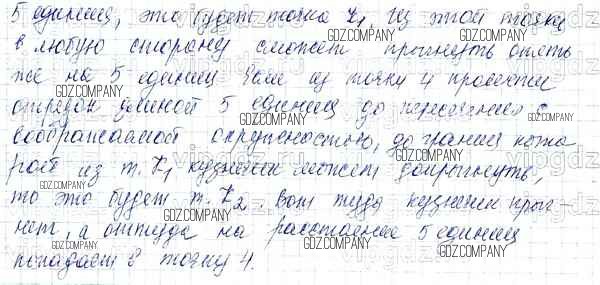 5 единиц, это будет точка K₁. Из этой точки
в любую сторону сможет прыгнуть опять
же на 5 единиц. Если из точки 4 провести
отрезок длиной 5 единиц до пересечения с
воображаемой окружностью, до границ кото
рой из т. K₁ кузнечик может допрыгнуть,
то это будет т. K₂. Вот туда кузнечик прыг-
нет, а оттуда на расстояние 5 единиц
попадает в точку 4.